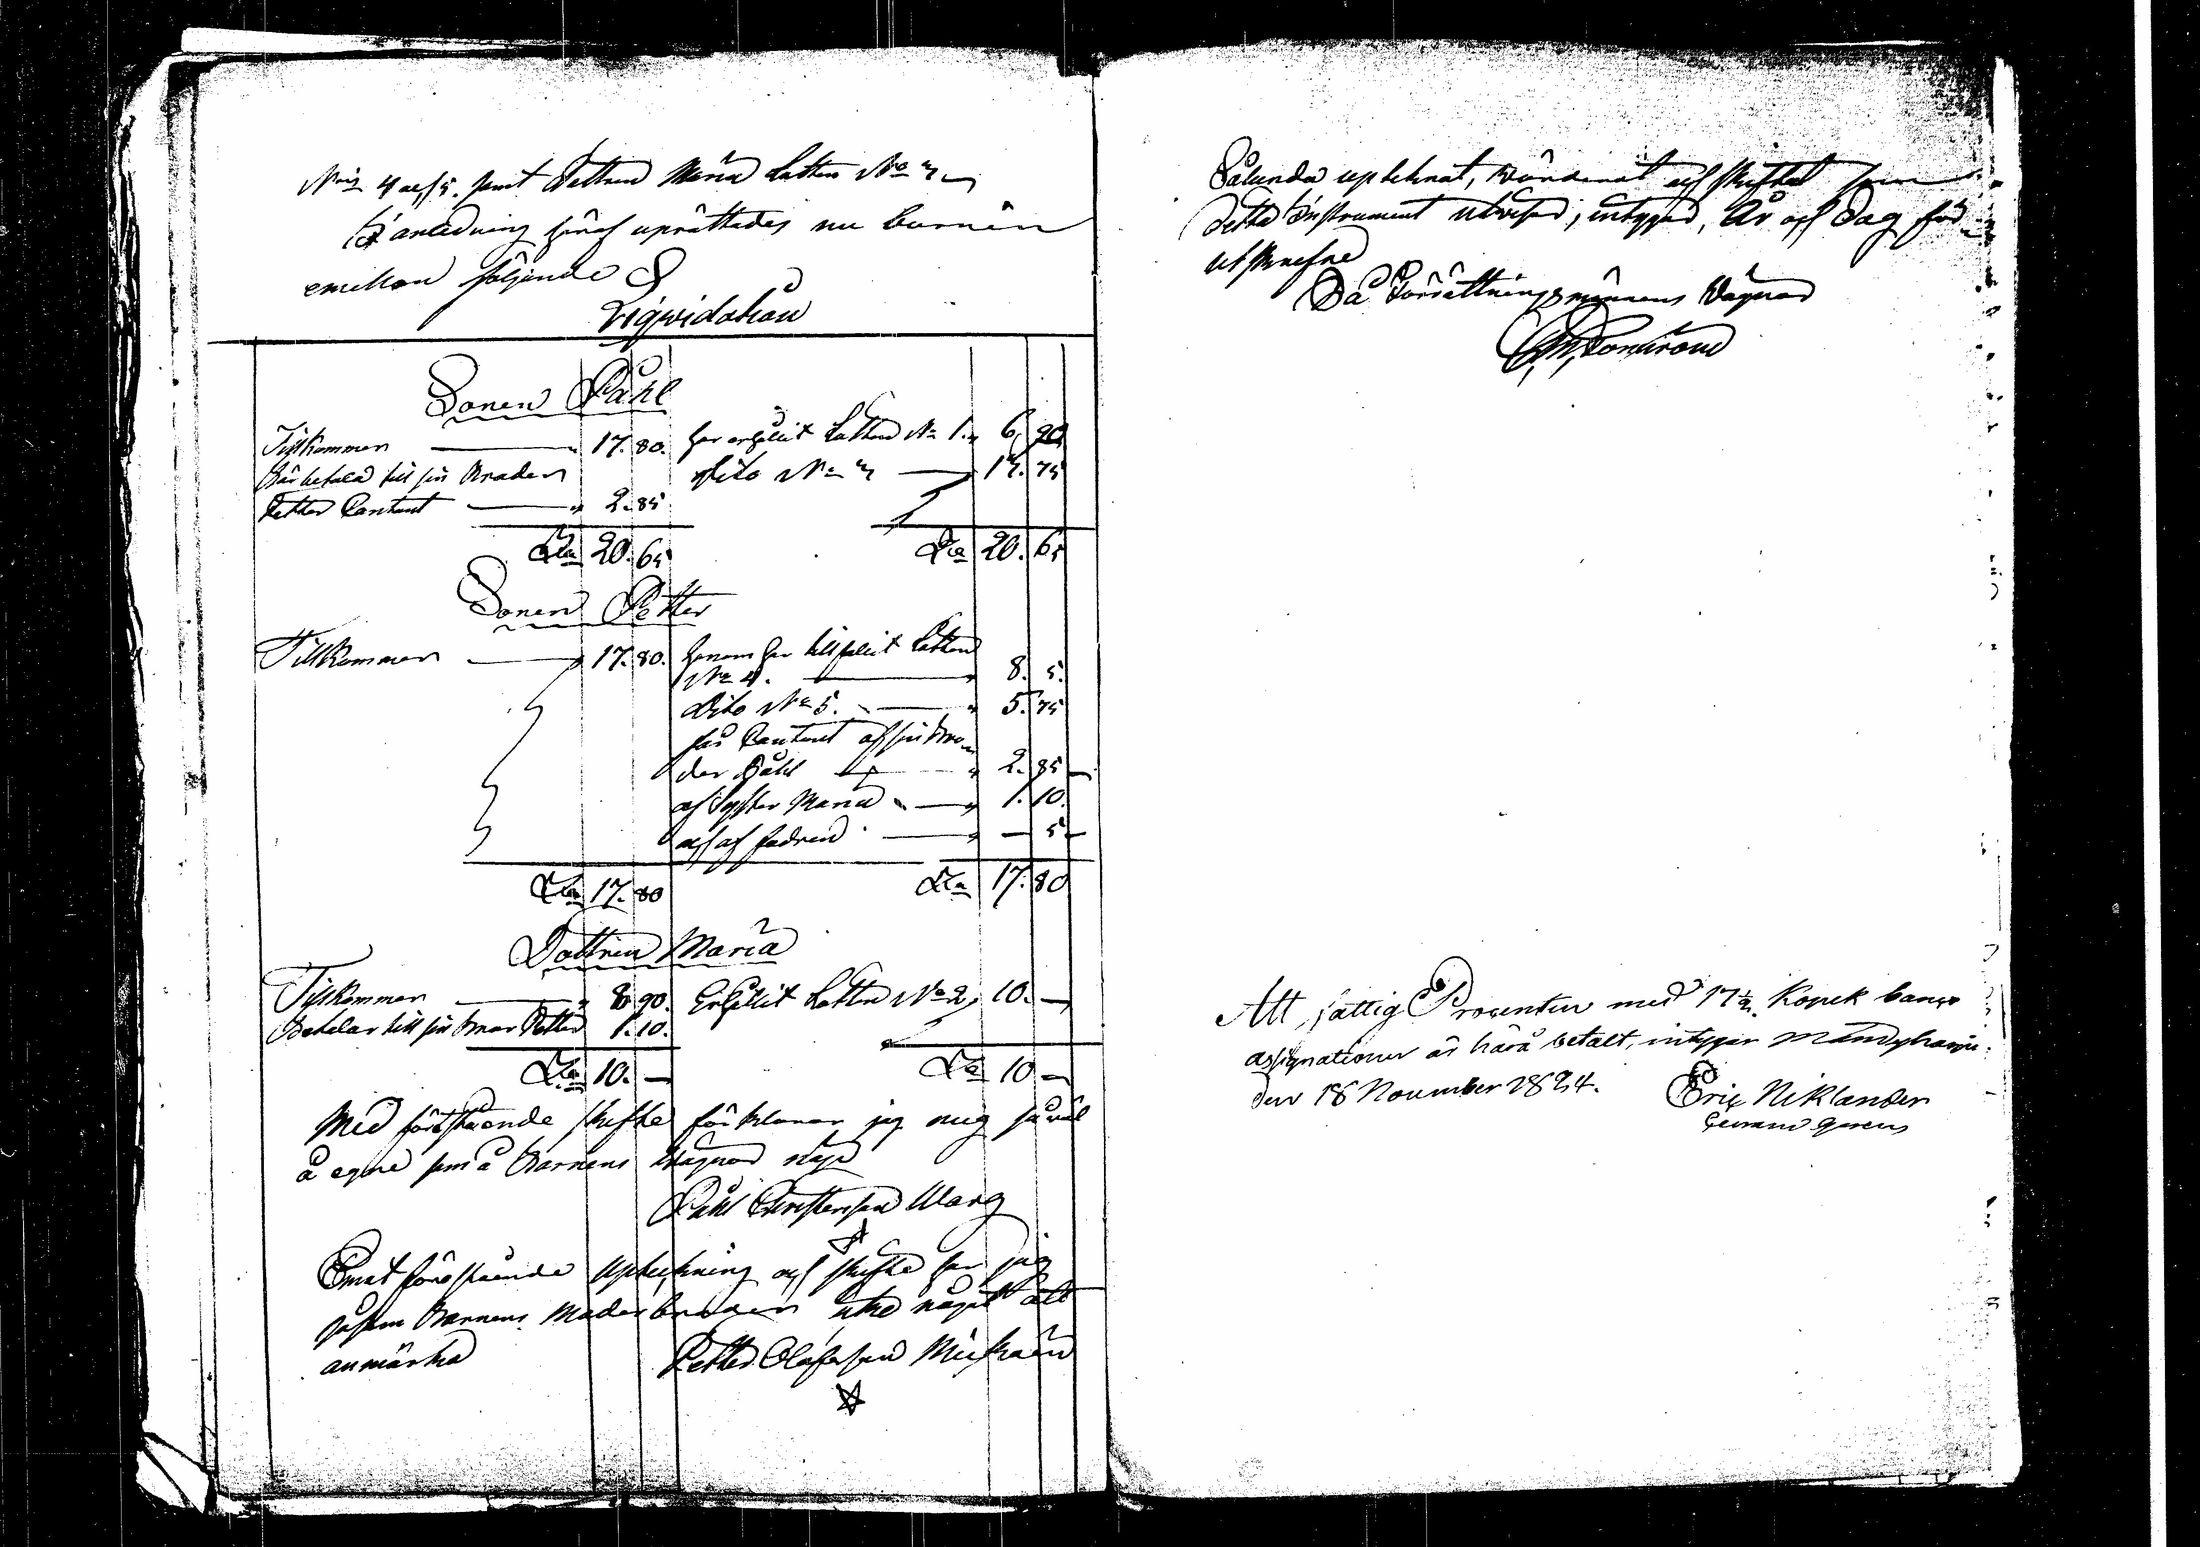 N:ris 4 och 5. samt Dottren Maria Lotten N:o 2
I anledning häraf uprättades nu barnen
emellan följande
Liqvidation
Sonen Påhl
Tillkommer 17. 80. har erhållit Lotten N:o 1. 6. 90
Bär betala till sin Broder dito N:o 3 13. 75
Petter Contant 2. 85
S:a 20. 65 S:a 20. 65
Sonen Petter
Tillkommer 17. 80. honom har tillfallit Lotten
N:o 4. 8. 5.
Dito N:o 5. 5. 75
får Contant af sin Bro-
der Påhl 2. 85
af Syster Maria 1. 10.
och af fadren — 5
S:a 17. 80 S:a 17. 80
Dottren Maria
Tillkommer 8. 90. Erhållit Lotten N:o 2, 10. —
Betalar till sin Bror Petter 1. 10.
S:a 10. — S:a 10 —
Med förestående skifte förklarar jag mig så väl
å egne som å Barnens vägnar nögd
Påhl Christersson Warg
Emot förestående uptekning och skifte har jag
såsom Barnens Moderbroder intet något att
anmärka Petter Olofsson
Sålunda uptecknat, värderat och skiftat som
detta Instrument utvisar, intygar, År och Dag för-
utskrefne
På Förrättningsmännens Vägnar
Att fattig Procenten med 17 ½ Kopek banco
assignationer är härå betalt, intygar Mändyharju
den 18 November 1834. Eric Niklander